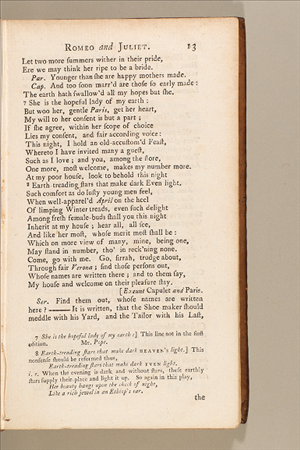 ROMEO and JULIET. 13
Let two more summers wither in their pride,
Ere we may think her ripe to be a bride.
Par. Younger than she are happy mothers made.
Cap. And too soon marr'd are those so early made:
The earth hath swallow'd all my hopes but she,
7 She is the hopeful lady of my earth:
But woo her, gentle Paris, get her heart,
My will to her consent is but a part;
If she agree, within her scope of choice
Lies my consent, and fair according voice:
This night, I hold an old-accustom'd Feast,
Whereto I have invited many a guest,
Such as I love; and you, among the store,
One more, most welcome, makes my number more.
At my poor house, look to behold this night
8 Earth-treading stars that make dark Even light.
Such comfort as do lusty young men feel,
When well-apparel'd April on the heel
Of limping Winter treads, even such delight
Among fresh female-buds shall you this night
Inherit at my house; hear all, all see,
And like her most, whose merit most shall be:
Which on more view of many, mine, being one,
May stand in number, tho' in reck'ning none.
Come, go with me. Go, sirrah, trudge about,
Through fair Verona; find those persons out,
Whose names are written there; and to them say,
My house and welcome on their pleasure stay.
[Exeunt Capulet and Paris.
Ser. Find them out, whose names are written
here? —— It is written, that the Shoe maker should
meddle with his Yard, and the Tailor with his Last,
7 She is the hopeful lady of my earth:] This line not in the first
edition. Mr. Pope.
8 Earth-treading stars that make dark HEAVEN's light.] This
nonsense should be reformed thus,
Earth-treading stars that make dark EVEN light.
i. e. When the evening is dark and without stars, these earthly
stars supply their place and light it up. So again in this play,
Her beauty hangs upon the cheek of night,
Like a rich jewel in an Ethiop's ear.
the